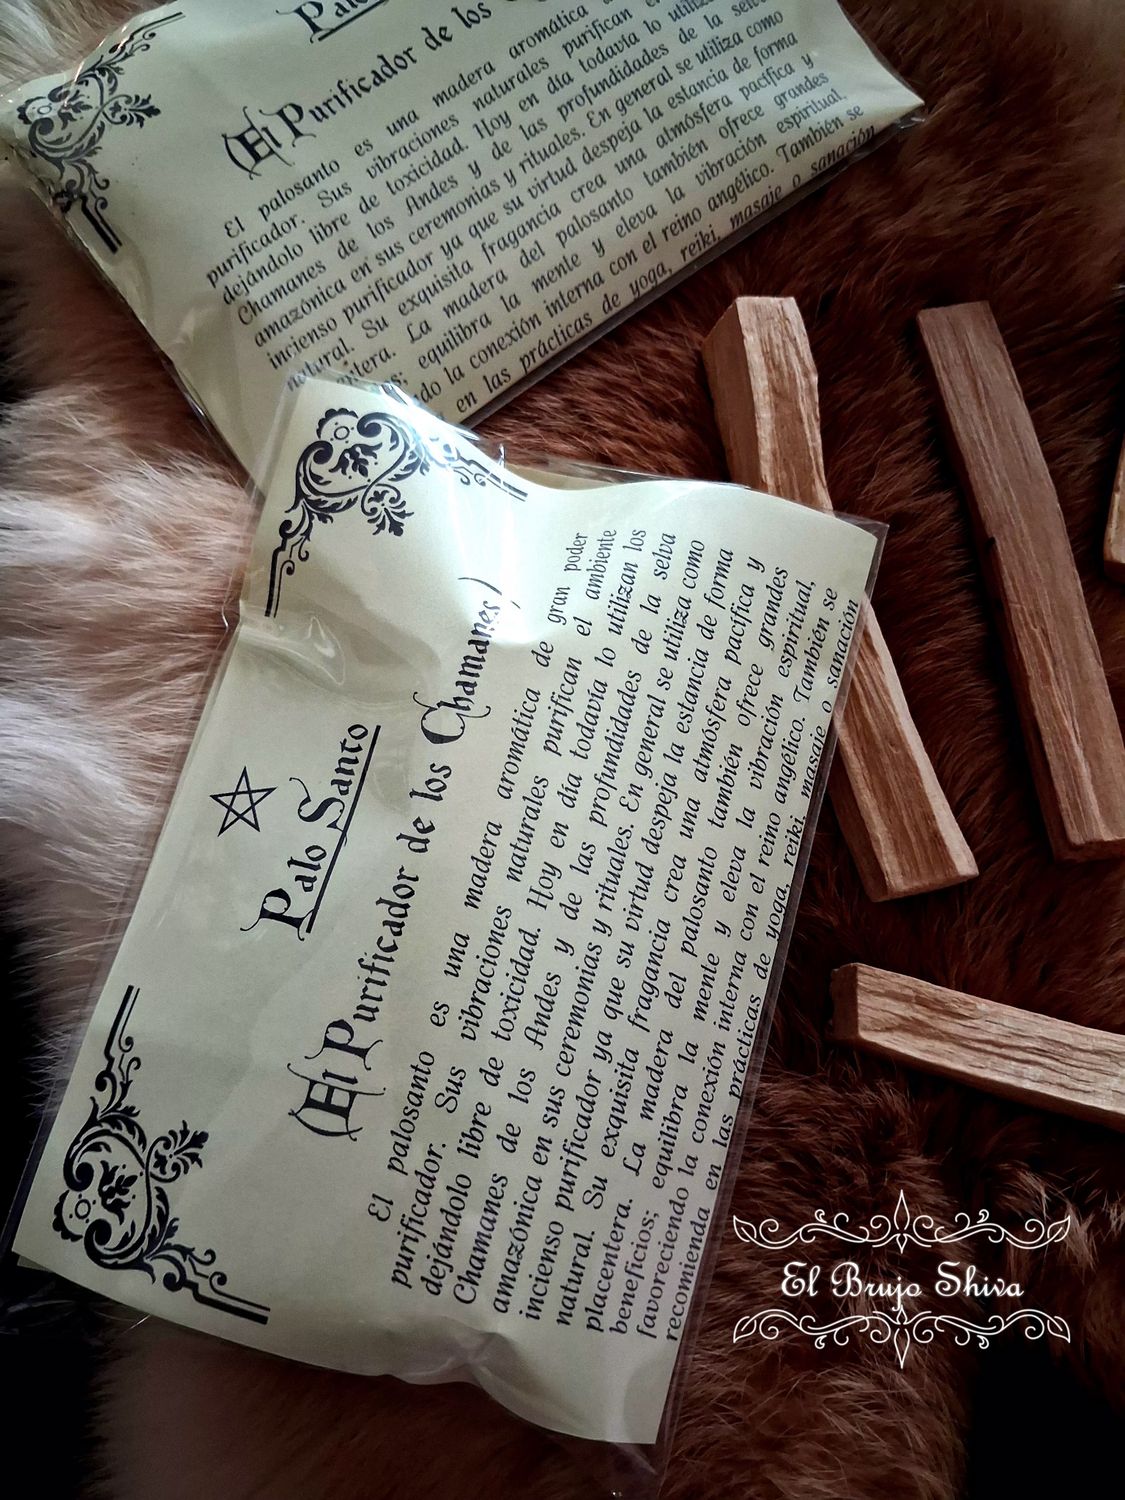 Palo
(El Purificador de los
El palosanto es una madera aromática
purificador. Sus vibraciones naturales purifican
dejándolo libre de toxicidad. Hoy en día todavía lo
Chamanes de los Andes y de las profundidades de la selva
amazónica en sus ceremonias y rituales. En general se utiliza como
incienso purificador ya que su virtud despeja la estancia de forma
natural. Su exquisita fragancia crea una atmósfera pacífica y
La madera del palosanto también ofrece grandes
equilibra la mente y eleva la vibración espiritual,
la conexión interna con el reino angélico. También se
en las prácticas de yoga, reiki, masaje o sanación
Palo Santo
(El Purificador de los Chamanes)
El palosanto es una madera aromática de gran poder
purificador. Sus vibraciones naturales purifican el ambiente
dejándolo libre de toxicidad. Hoy en día todavía lo utilizan los
Chamanes de los Andes y de las profundidades de la selva
amazónica en sus ceremonias y rituales. En general se utiliza como
incienso purificador ya que su virtud despeja la estancia de forma
natural. Su exquisita fragancia crea una atmósfera pacífica y
placentera. La madera del palosanto también ofrece grandes
beneficios; equilibra la mente y eleva la vibración espiritual,
favoreciendo la conexión interna con el reino angélico. También se
recomienda en las prácticas de yoga, reiki, masaje o sanación
El Brujo Shiva